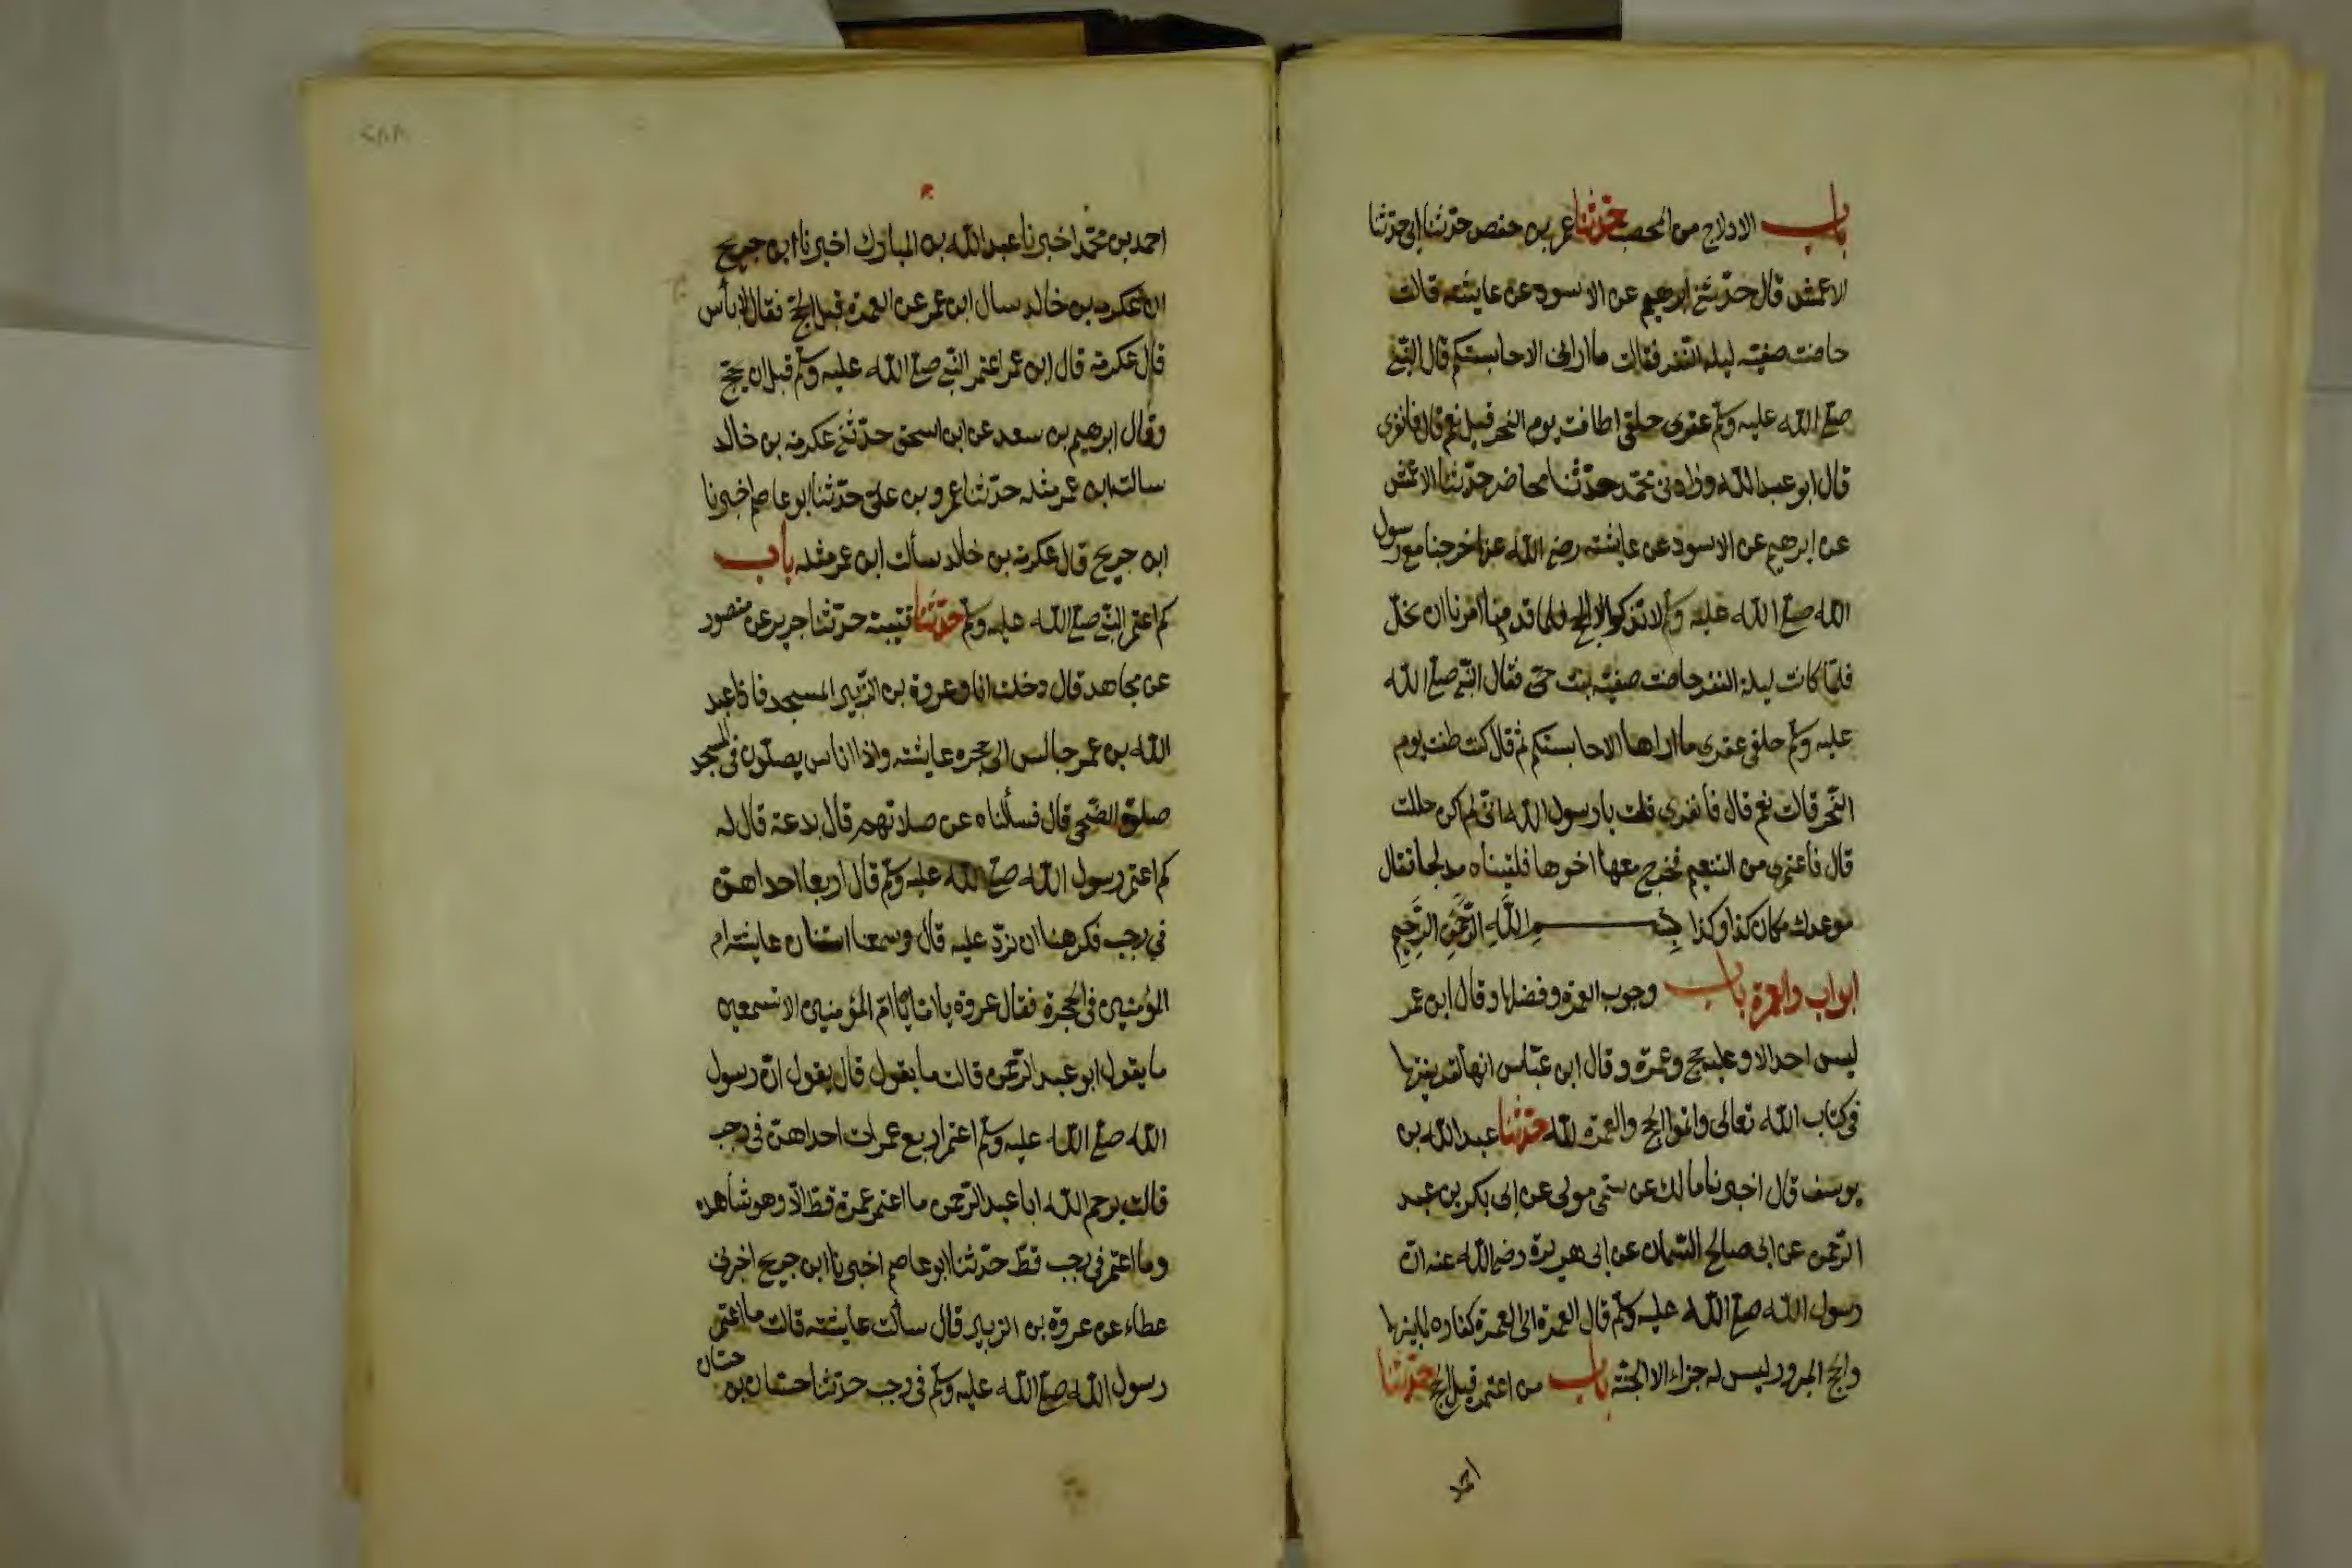 باب الادلاج من المحصب حدّثنا عمر بن حفص حدّثنا ابى حدّثنا
الاعمش قال حدّثنى ابرهيم عن الاسود عن عايشه قالت
حاضت صفيّه ليله النّفر فقالت ما ارانى الا حابستكم قال النبّى
صلّى اللّه عليه وسلّم عقرى حلقى اطافت يوم النحر قيل نعم قال فانفرى
قال ابو عبد اللّه وزادنى محمّد حدّثنا محاضر حدّثنا الاعمش
عن ابرهيم عن الاسود عن عايشه رضى اللّه عنها خرجنا مع رسول
اللّه صلّى اللّه عليه وسلّم لا نذكر الا الحج فلمّا قدمنا امرنا ان نحلّ
فلمّا كانت ليلة النفر حاضت صفيّه بنت حيّى فقال النبّى صلّى اللّه
عليه وسلّم حلقى عقرى ما اراها الا حابستكم ثم قال كنت طفت يوم
النّحر قالت نعم قال فانفرى قلت يا رسول اللّه انّى لم اكن حللت
قال فاعتمرى من التنعيم فخرج معها اخوها فلقيناه مدلجا فقال
موعدك مكان كذا وكذا بِسْمِ اللَّهِ الرَّحْمَنِ الرَّحِيمِ
ابواب والعمرة باب وجوب العمرة وفضلها وقال ابن عمر
ليس احد الا وعليه حج وعمرة وقال ابن عبّاس انها لقرينتها
فى كتاب اللّه تعالى واتموا الحج والعمرة للّه حدّثنا عبد اللّه بن
يوسف قال اخبرنا مالك عن سمّى مولى عن ابى بكر بن عبد
الرّحمن عن ابى صالح السّمان عن ابى هريرة رضى اللّه عنه انّ
رسول اللّه صلّى اللّه عليه وسلّم قال العمرة الى العمرة كفاره لما بينهما
والحج المبرور ليس له جزاء الا الجنّه باب من اعتمر قبل الحج حدّثنا
احمد
٢٨٨
احمد بن محمّد اخبرنا عبد اللّه بن المبارك اخبرنا ابن جريج
ان عكرمه بن خالد سال ابن عمر عن العمرة قبل الحجّ فقال لا بأس
قال عكرمة قال ابن عمر اعتمر النّبى صلّى اللّه عليه وسلّم قبل ان يحجّ
وقال ابرهيم بن سعد عن ابن اسحق حدّثنى عكرمة بن خالد
سالت ابن عمر مثله حدّثنا عمرو بن علىّ حدّثنا ابو عاصم اخبرنا
ابن جريج قال عكرمة بن خالد سألت ابن عمر مثله باب
كم اعتمر النّبى صلّى اللّه عليه وسلّم حدّثنا قتيبة حدّثنا جرير عن منصور
عن مجاهد قال دخلت انا وعروة بن الزّبير المسجد فاذا عبد
اللّه بن عمر جالس الى حجره عايشه واذا اناس يصلّون فى المسجد
صلوة الضّحى قال فسألناه عن صلاتهم قال بدعة قال له
كم اعتمر رسول اللّه صلّى اللّه عليه وسلّم قال اربعا احداهنّ
فى رجب فكرهنا ان نردّ عليه قال وسمعنا استنان عايشه ام
المؤمنين فى الحجرة فقال عروة يا امّ المؤمنين الا تسمعين
ما يقول ابو عبد الرّحمن قالت ما يقول قال يقول انّ رسول
اللّه صلّى اللّه عليه وسلّم اعتمر اربع عمرات احداهنّ فى رجب
قالت يرحم اللّه ابا عبد الرّحمن ما اعتمر عمرة قطّ الّا وهو شاهده
وما اعتمر فى رجب قطّ حدّثنا ابو عاصم اخبرنا ابن جريج اخبرنى
عطاء عن عروة بن الزبير قال سألت عايشه قالت ما اعتمر
رسول اللّه صلّى اللّه عليه وسلّم فى رجب حدّثنا حسّان بن حسّان